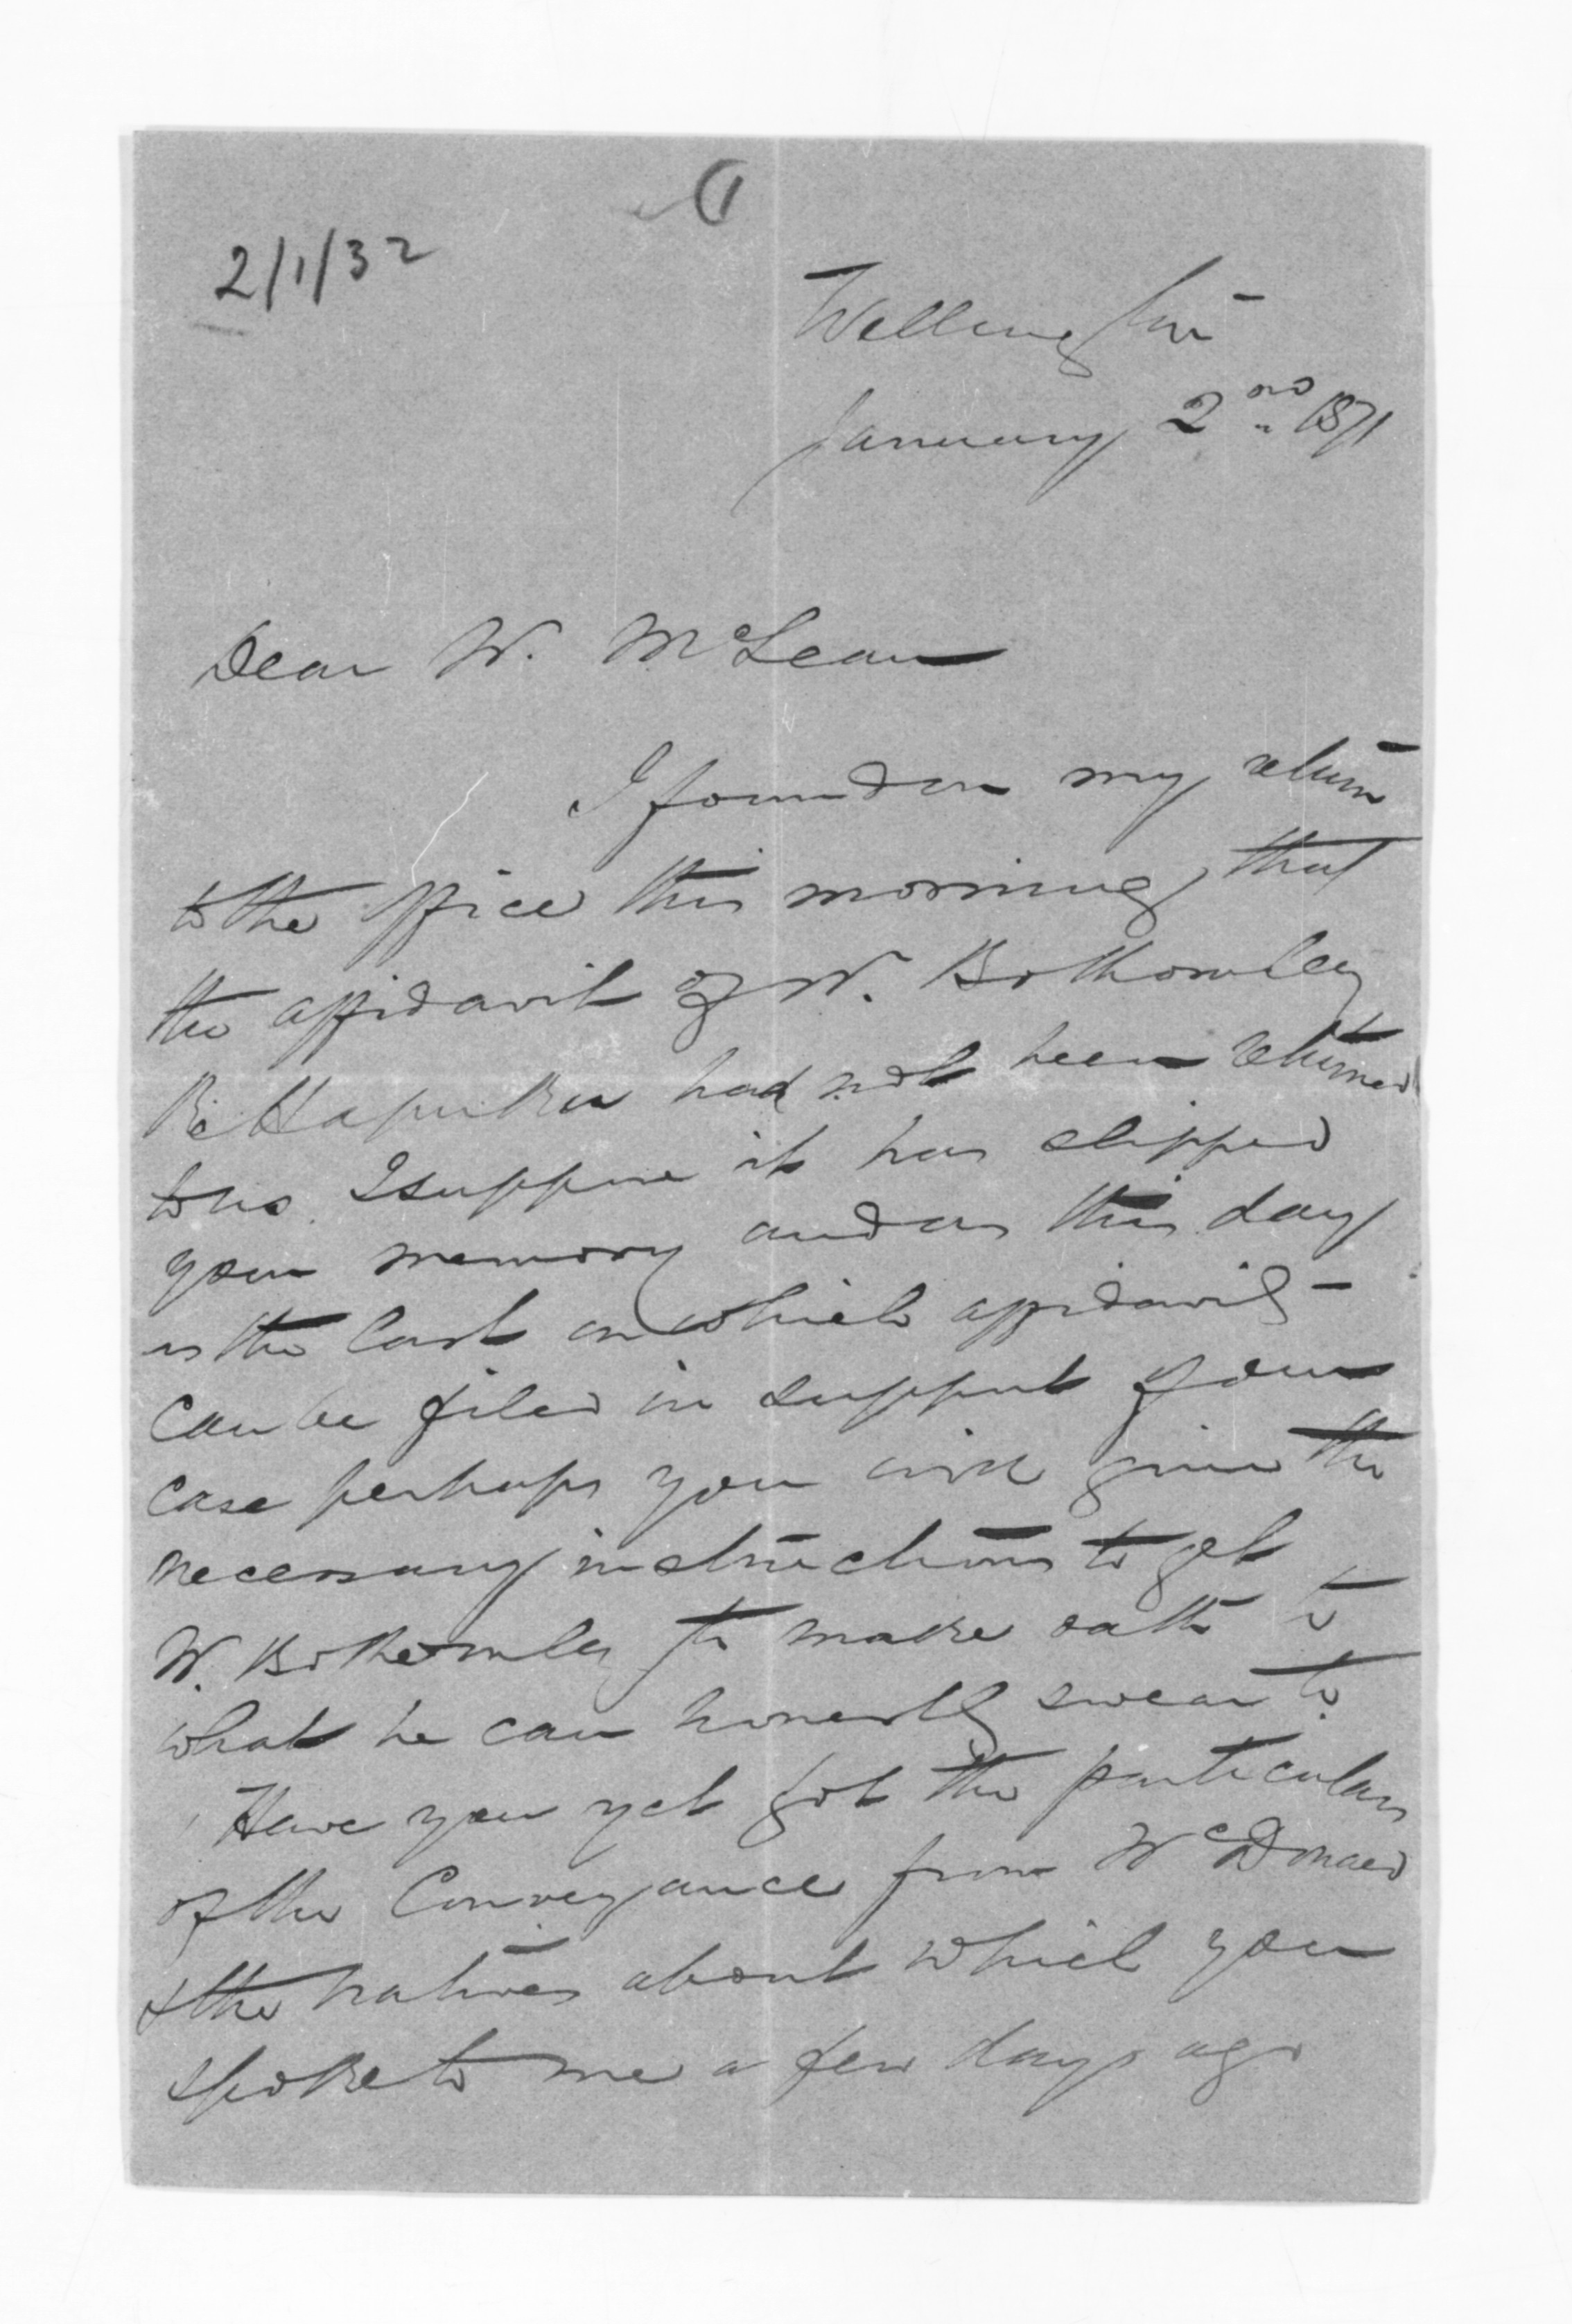 2/1/32
Wellington
January 2nd 1871
Dear W. McLean
I found on my return
to the office this morning that
the affidavit of W. Bothomley
Re Hapuku had not been returned
to us. I suppose it has slipped
your memory and as this day
is the last on which affidavits
can be filed in support of our
case perhaps you will give the
necessary instructions to get
W. Bothomley to make oath to
what he can honestly swear to.
Have you yet got the particulars
of the Conveyance from McDonald
& the natives about which you
spoke to me a few days ago